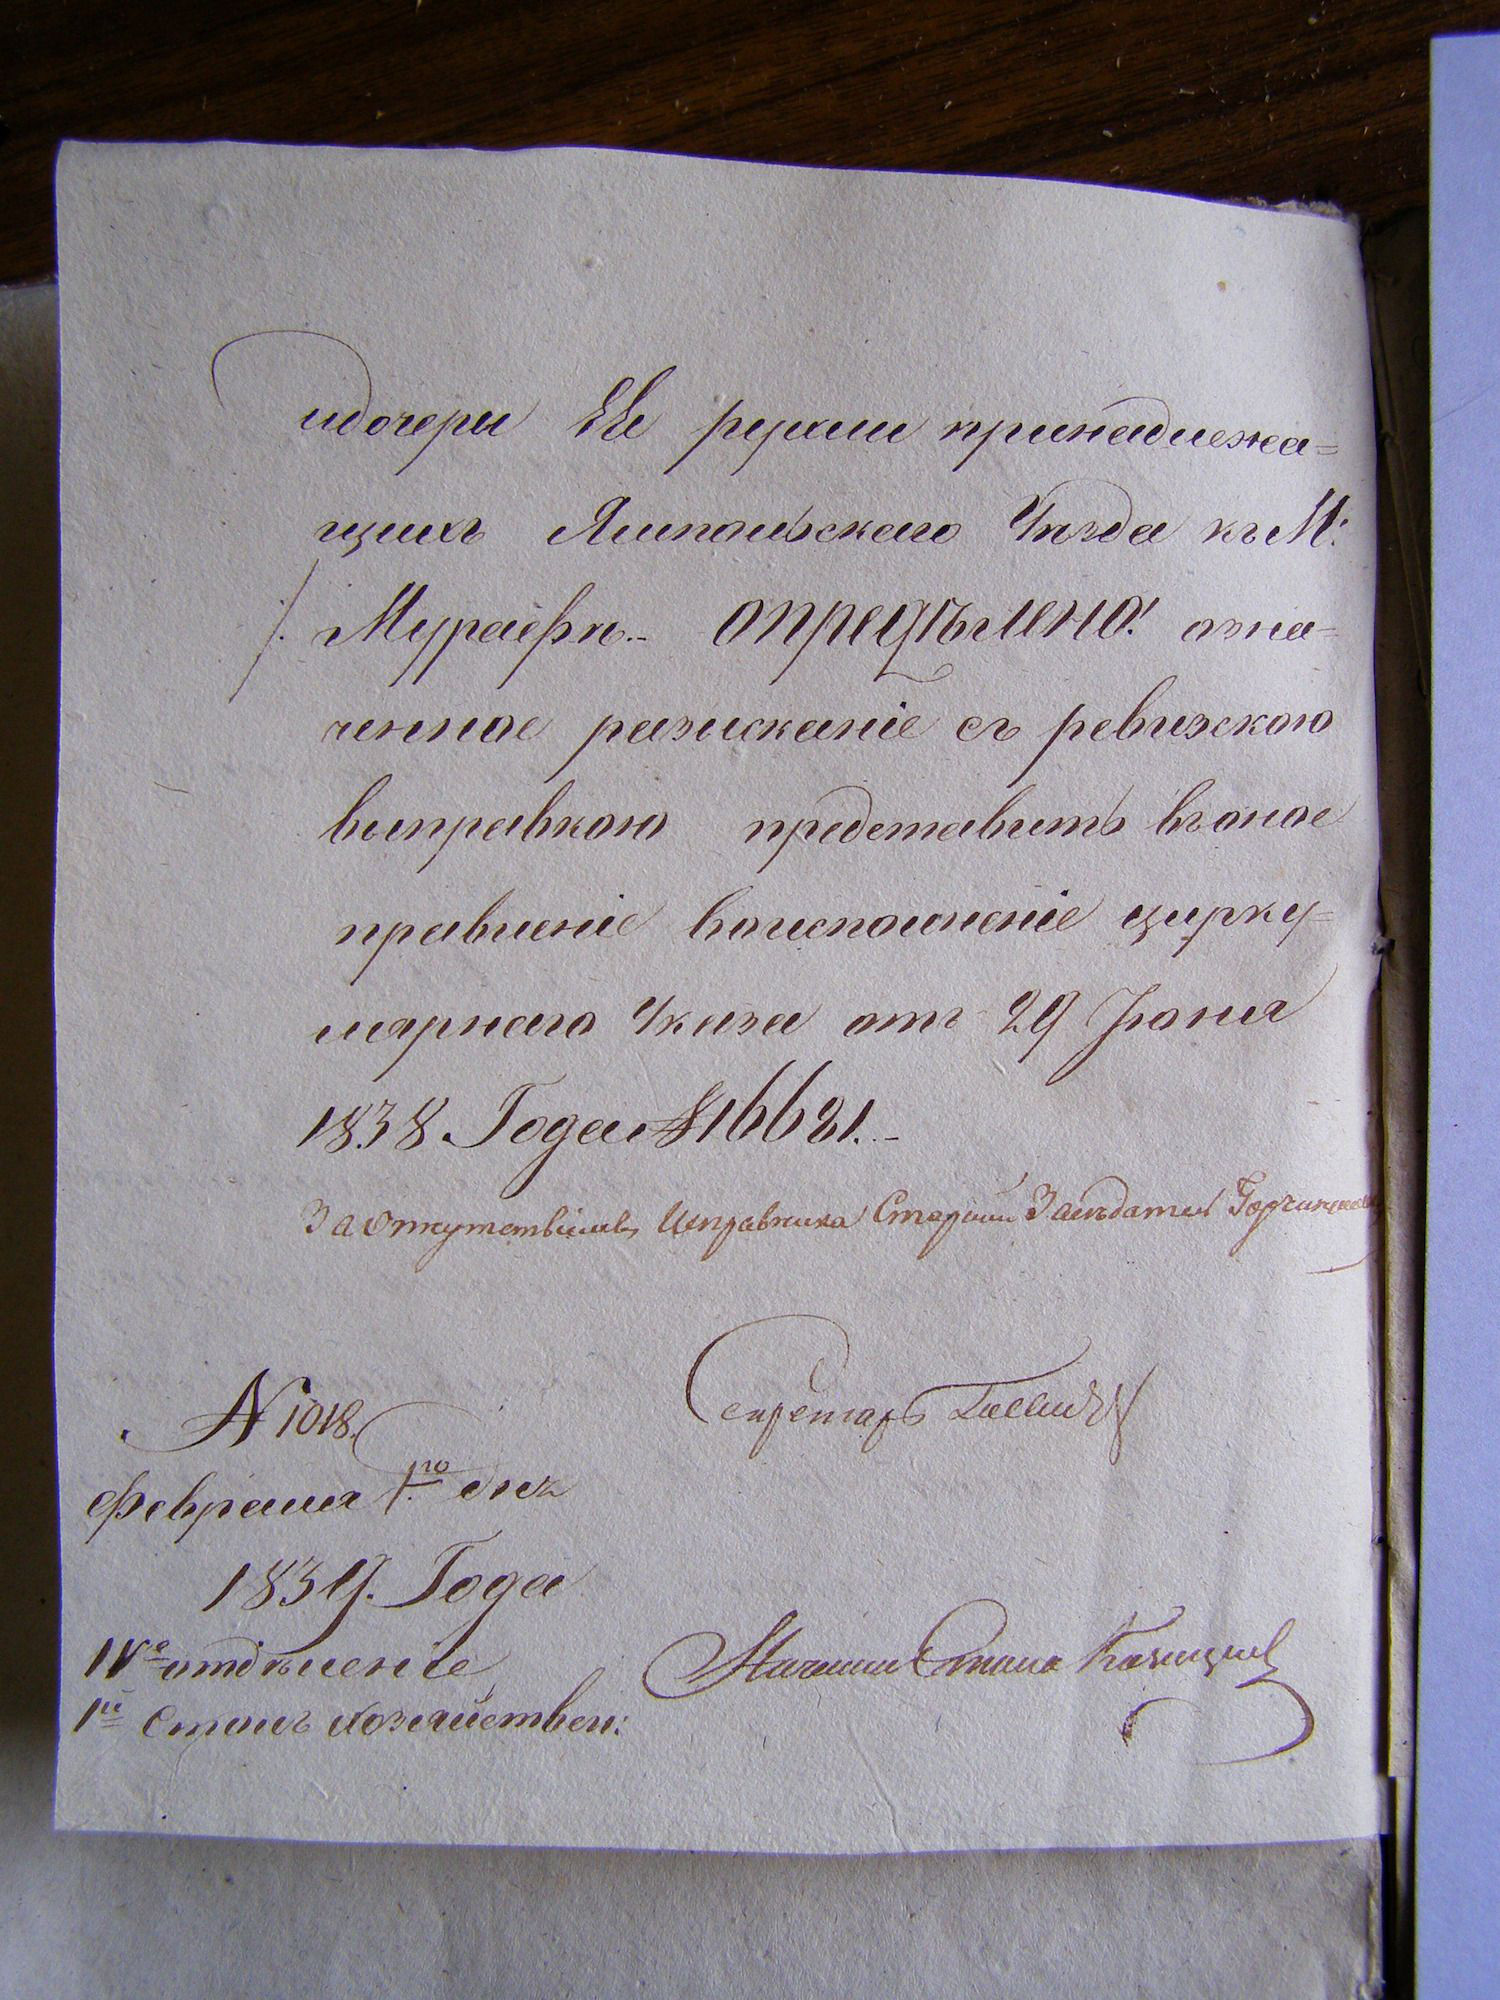 идочеры Ее рухли принадлежа=
щихъ Ямпольскаго Уѣзда къ М:
Мураефѣ.- опредѣлено: озна=
ченное разысканіе съ ревизскою
выправкою представить въ оное
правленіе воисполненіе цирку=
лярнаго Указа отъ 29 Іюня
1838 Года № 16621.-
За отсутствіемъ Исправника Старшій Засѣдатель
Секретарь
№ 1018.
Февраля 1го дня
1839. Года
IVе отдѣленіе
1й столъ хозяйствен:
Начальн Стола